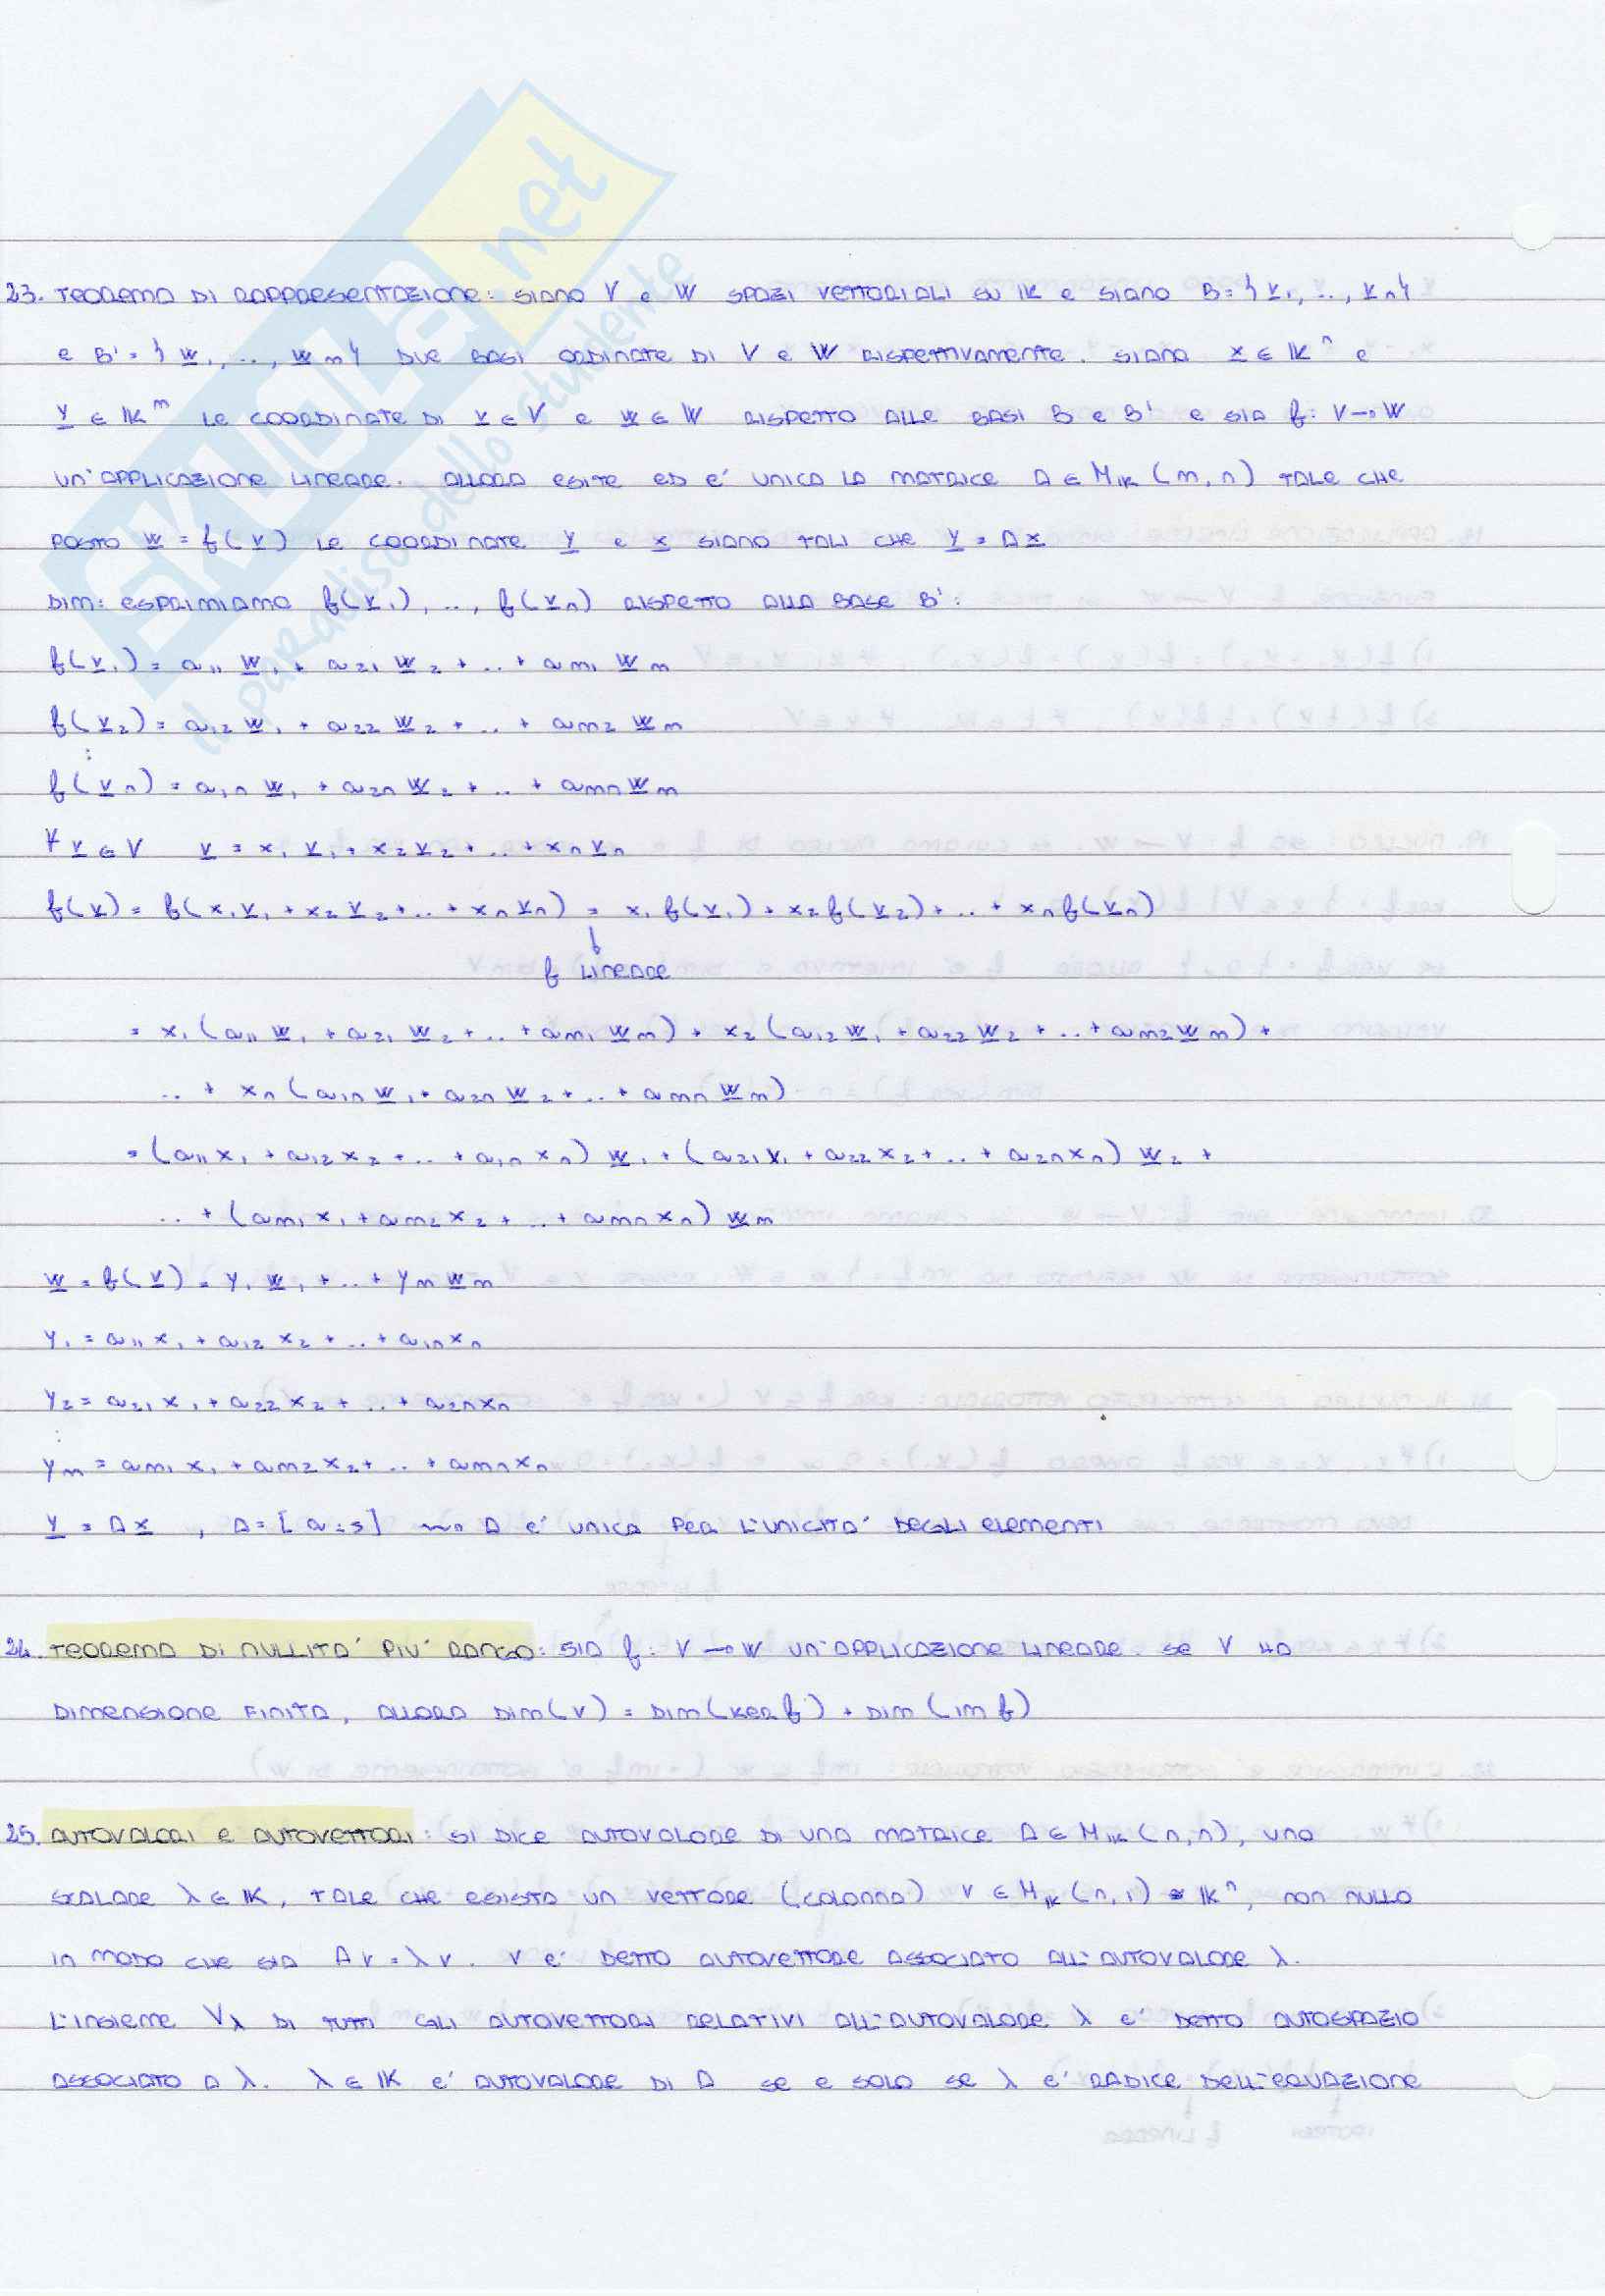 SKUOLA.net
il paradiso dello studente
23. TEOREMA DI RAPPRESENTAZIONE: SIANO V e W SPAZI VETTORIALI SU IK e SIANO B={v₁,..,vn}
e B'={w₁,..,wm} DUE BASI ORDINATE DI V e W RISPETTIVAMENTE. SIANO x ∈ IKⁿ e
y ∈ IKᵐ LE COORDINATE DI v ∈ V e w ∈ W RISPETTO ALLE BASI B e B' e SIA f: V→W
UN'APPLICAZIONE LINEARE. ALLORA ESITE ED E' UNICA LA MATRICE A ∈ M_IK (m,n) TALE CHE
POSTO w = f(v) LE COORDINATE y e x SIANO TALI CHE y = Ax
DIM: ESPRIMIAMO f(v₁),..,f(vn) RISPETTO ALLA BASE B':
f(v₁) = a₁₁ w₁ + a₂₁ w₂ + .. + am₁ wm
f(v₂) = a₁₂ w₁ + a₂₂ w₂ + .. + am₂ wm
:
f(vn) = a₁n w₁ + a₂n w₂ + .. + amn wm
∀ v ∈ V v = x₁ v₁ + x₂ v₂ + .. + xn vn
f(v) = f(x₁v₁ + x₂v₂ + .. + xn vn) = x₁ f(v₁) + x₂ f(v₂) + .. + xn f(vn)
↓
f LINEARE
= x₁ (a₁₁ w₁ + a₂₁ w₂ + .. + am₁ wm) + x₂ (a₁₂ w₁ + a₂₂ w₂ + .. + am₂ wm) +
.. + xn (a₁n w₁ + a₂n w₂ + .. + amn wm)
= (a₁₁x₁ + a₁₂x₂ + .. + a₁n xn) w₁ + (a₂₁x₁ + a₂₂x₂ + .. + a₂n xn) w₂ +
.. + (am₁x₁ + am₂x₂ + .. + amn xn) wm
w = f(v) = y₁ w₁ + .. + ym wm
y₁ = a₁₁ x₁ + a₁₂ x₂ + .. + a₁n xn
y₂ = a₂₁ x₁ + a₂₂ x₂ + .. + a₂n xn
:
ym = am₁ x₁ + am₂ x₂ + .. + amn xn
y = Ax , A = [aij] ⇝ A E' UNICA PER L'UNICITA' DEGLI ELEMENTI
24. TEOREMA DI NULLITA' PIU' RANGO: SIA f: V→W UN'APPLICAZIONE LINEARE. SE V HA
DIMENSIONE FINITA, ALLORA DIM(V) = DIM(KER f) + DIM(IM f)
25. AUTOVALORI E AUTOVETTORI: SI DICE AUTOVALORE DI UNA MATRICE A ∈ M_IK (n,n), UNO
SCALARE λ ∈ IK, TALE CHE ESISTA UN VETTORE (COLONNA) v ∈ M_IK (n,1) ≅ IKⁿ, NON NULLO
IN MODO CHE SIA Av = λv. v E' DETTO AUTOVETTORE ASSOCIATO ALL'AUTOVALORE λ.
L'INSIEME Vλ DI TUTTI GLI AUTOVETTORI RELATIVI ALL'AUTOVALORE λ E' DETTO AUTOSPAZIO
ASSOCIATO A λ. λ ∈ IK E' AUTOVALORE DI A SE E SOLO SE λ E' RADICE DELL'EQUAZIONE